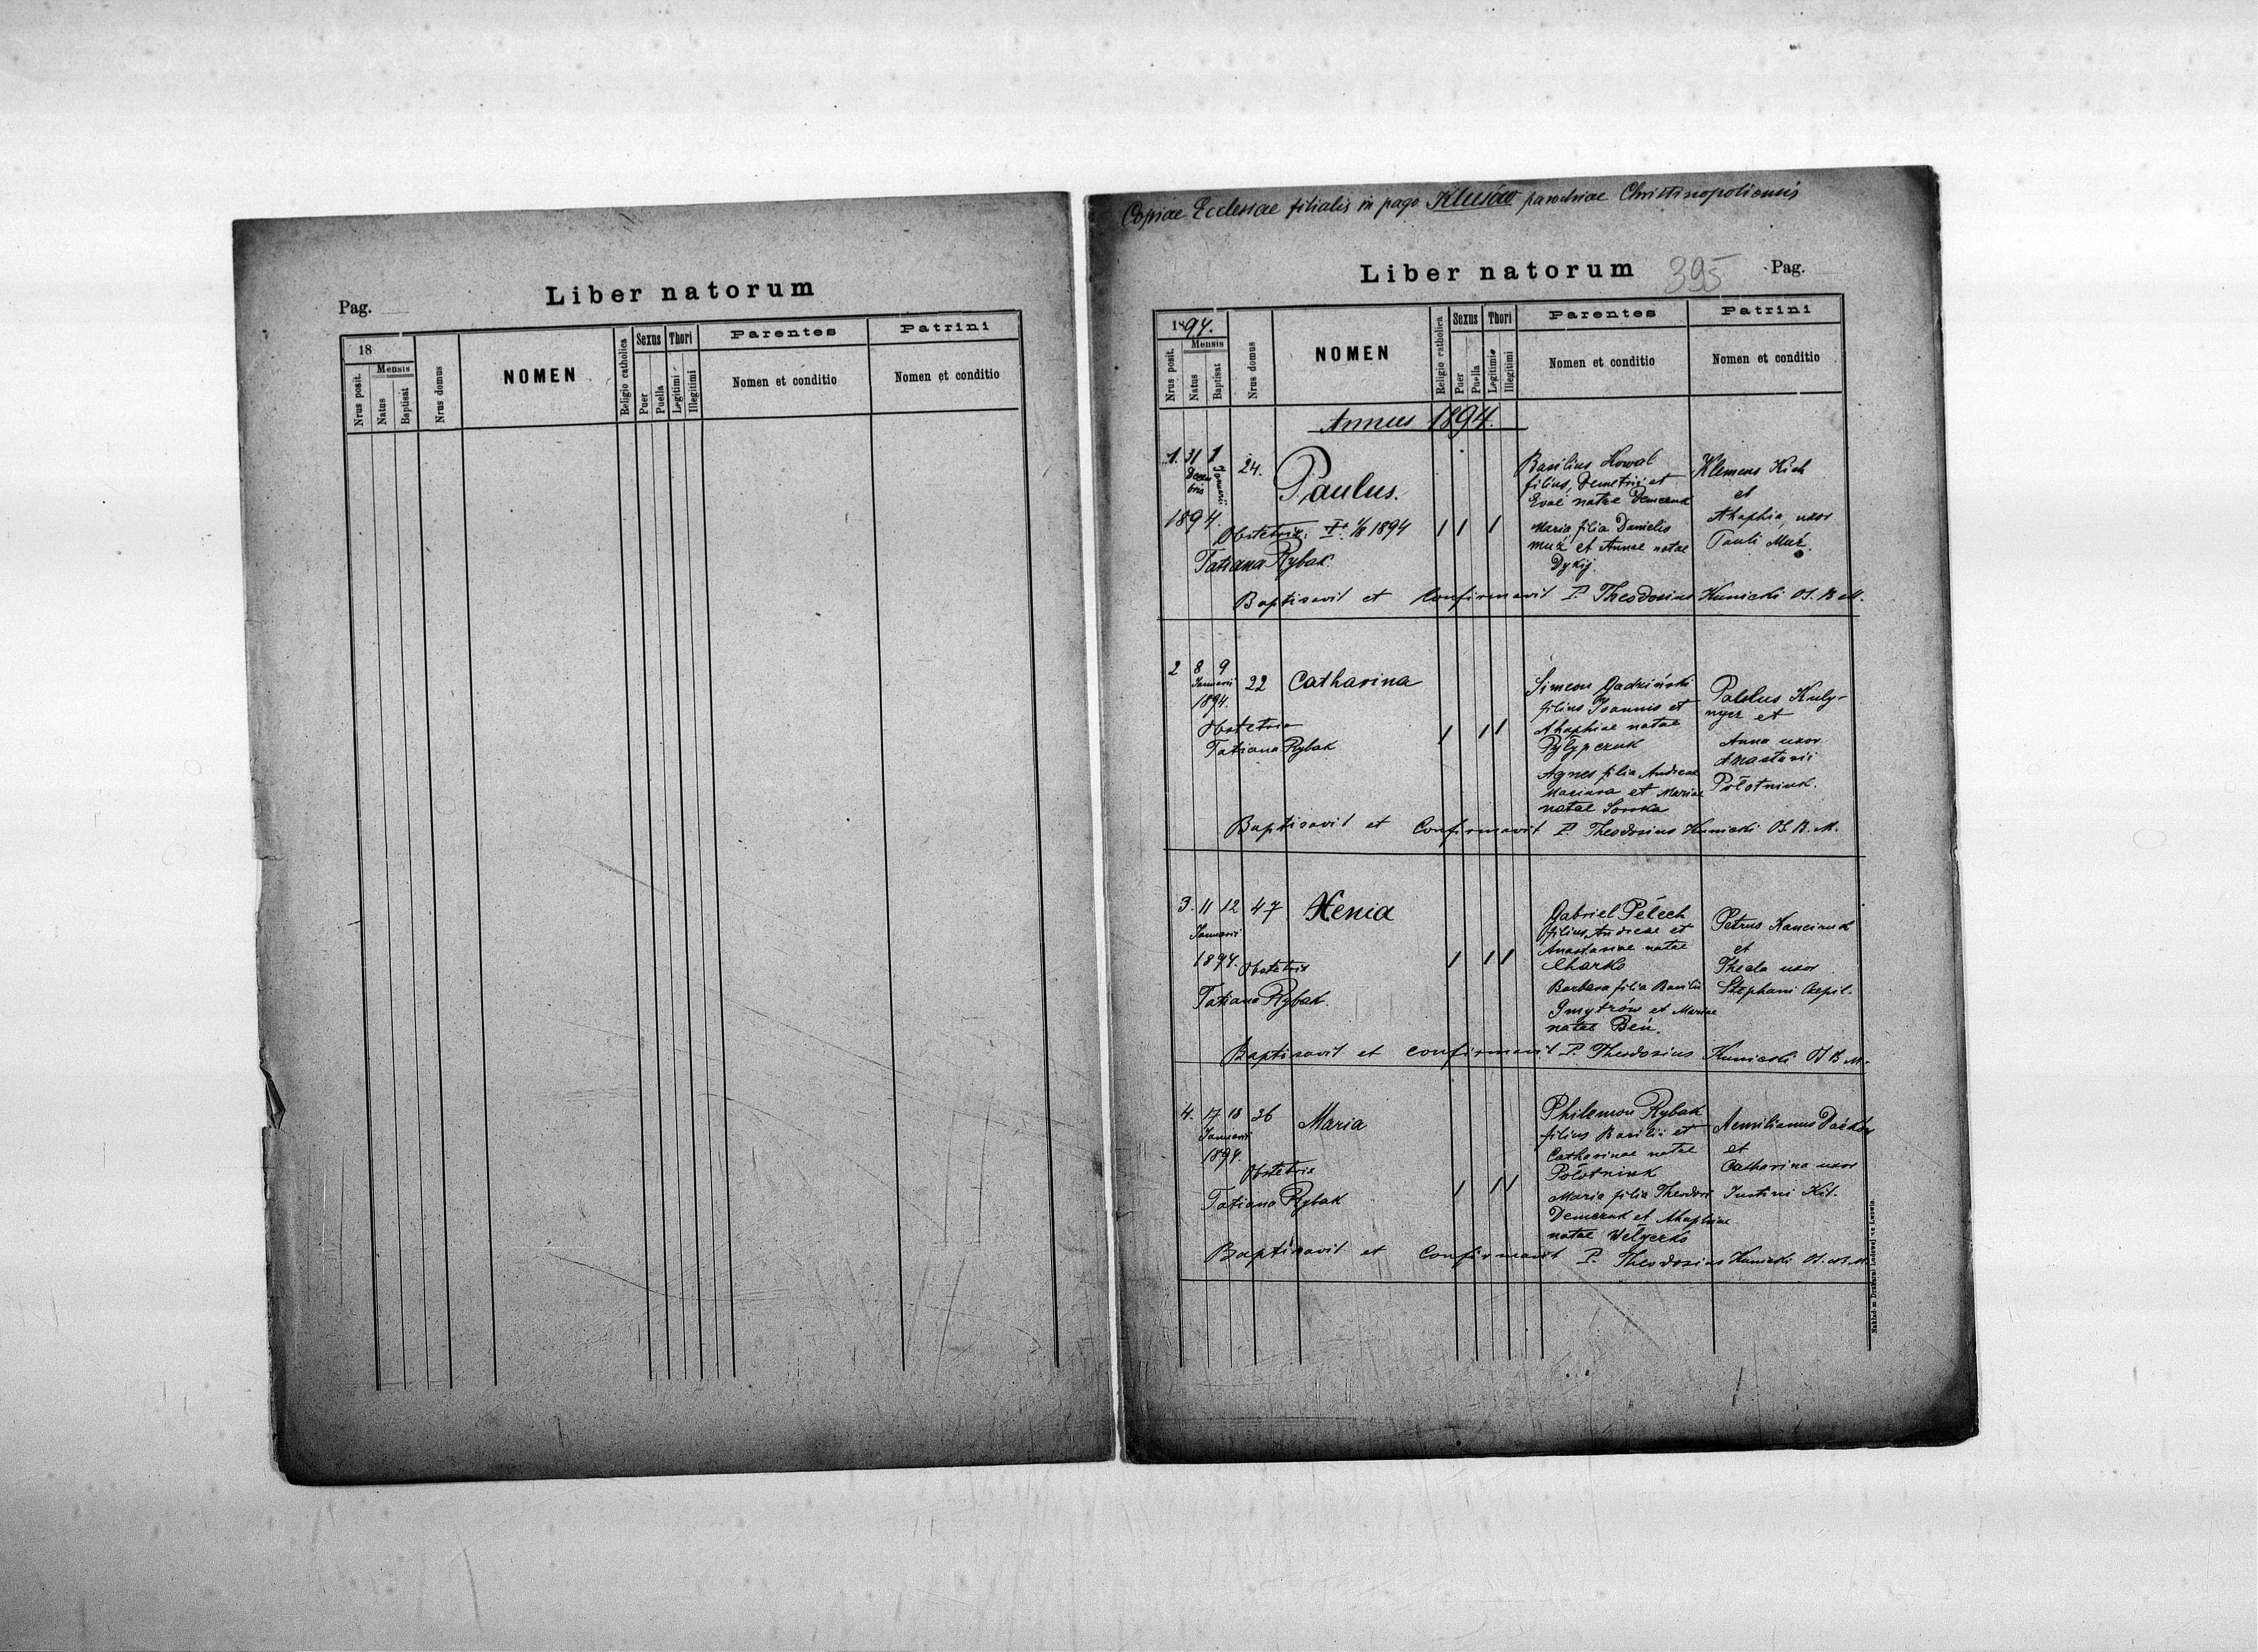 Liber natorum
Pag.
18
Mensis
Nrus posit.
Natus
Baptisat
Nrus domus
NOMEN
Religio catholica
Sexus
Puer
Puella
Thori
Legitimi
Illegitimi
Parentes
Nomen et conditio
Patrini
Nomen et conditio
Copiae Ecclesiae filialis in pago Klusów parochiae Christinopoliensis
Liber natorum 395 Pag.
1894.
Mensis
Nrus posit.
Natus
Baptisat
Nrus domus
NOMEN
Religio catholica
Sexus
Puer
Puella
Thori
Legitimi
Illegitimi
Parentes
Nomen et conditio
Patrini
Nomen et conditio
Annus 1894.
1. 31 1 24. Paulus.
Decem
bris
Januarii
1894.
Obstetrix: 1894
Tatiana Rybak.
Basilius Kowal
filius, Demetrii et
Evae natae Demczuk
Maria filia Danielis
Muź et Annae natae
Dykij.
Klemens Kich
et
Ahaphia, uxor
Pauli Muź.
Baptisavit et Confirmavit P. Theodosius Kunicki OS.B.M.
2 8 9 22 Catharina
Januarii
1894.
Obstetrix
Tatiana Rybak
Simeon Gadziński
filius Joannis et
Ahaphiae natae
Pyłypczuk
Agnes filia Andreae
Maciura et Mariae
natae Soroka
Paulus Kuly-
nycz et
Anna uxor
Anastasii
Połotniuk.
Baptisavit et Confirmavit P. Theodosius Kunicki OS.B.M.
3. 11 12 47 Xenia
Januarii
1894. Obstetrix
Tatiana Rybak.
Gabriel Pełech
filius Andreae et
Anastasiae natae
Charko
Barbara filia Basilii
Gmytrów et Mariae
natae Beń.
Petrus Kanciruk
et
Thecla uxor
Stephani Czepil.
Baptisavit et confirmavit P. Theodosius Kunicki OSBM.
4. 17 18 36 Maria
Januarii
1894.
Obstetrix
Tatiana Rybak
Philemon Rybak
filius Basilii et
Catharinae natae
Połotniuk
Maria filia Theodori
Demczuk et Ahaphiae
natae Wełyczko
Aemilianus Daćków
et
Catharina uxor
Justini Kit.
Baptisavit et Confirmavit P. Theodosius Kunicki OS.B.M.
Nakładem Drukarni Ludowej we Lwowie.